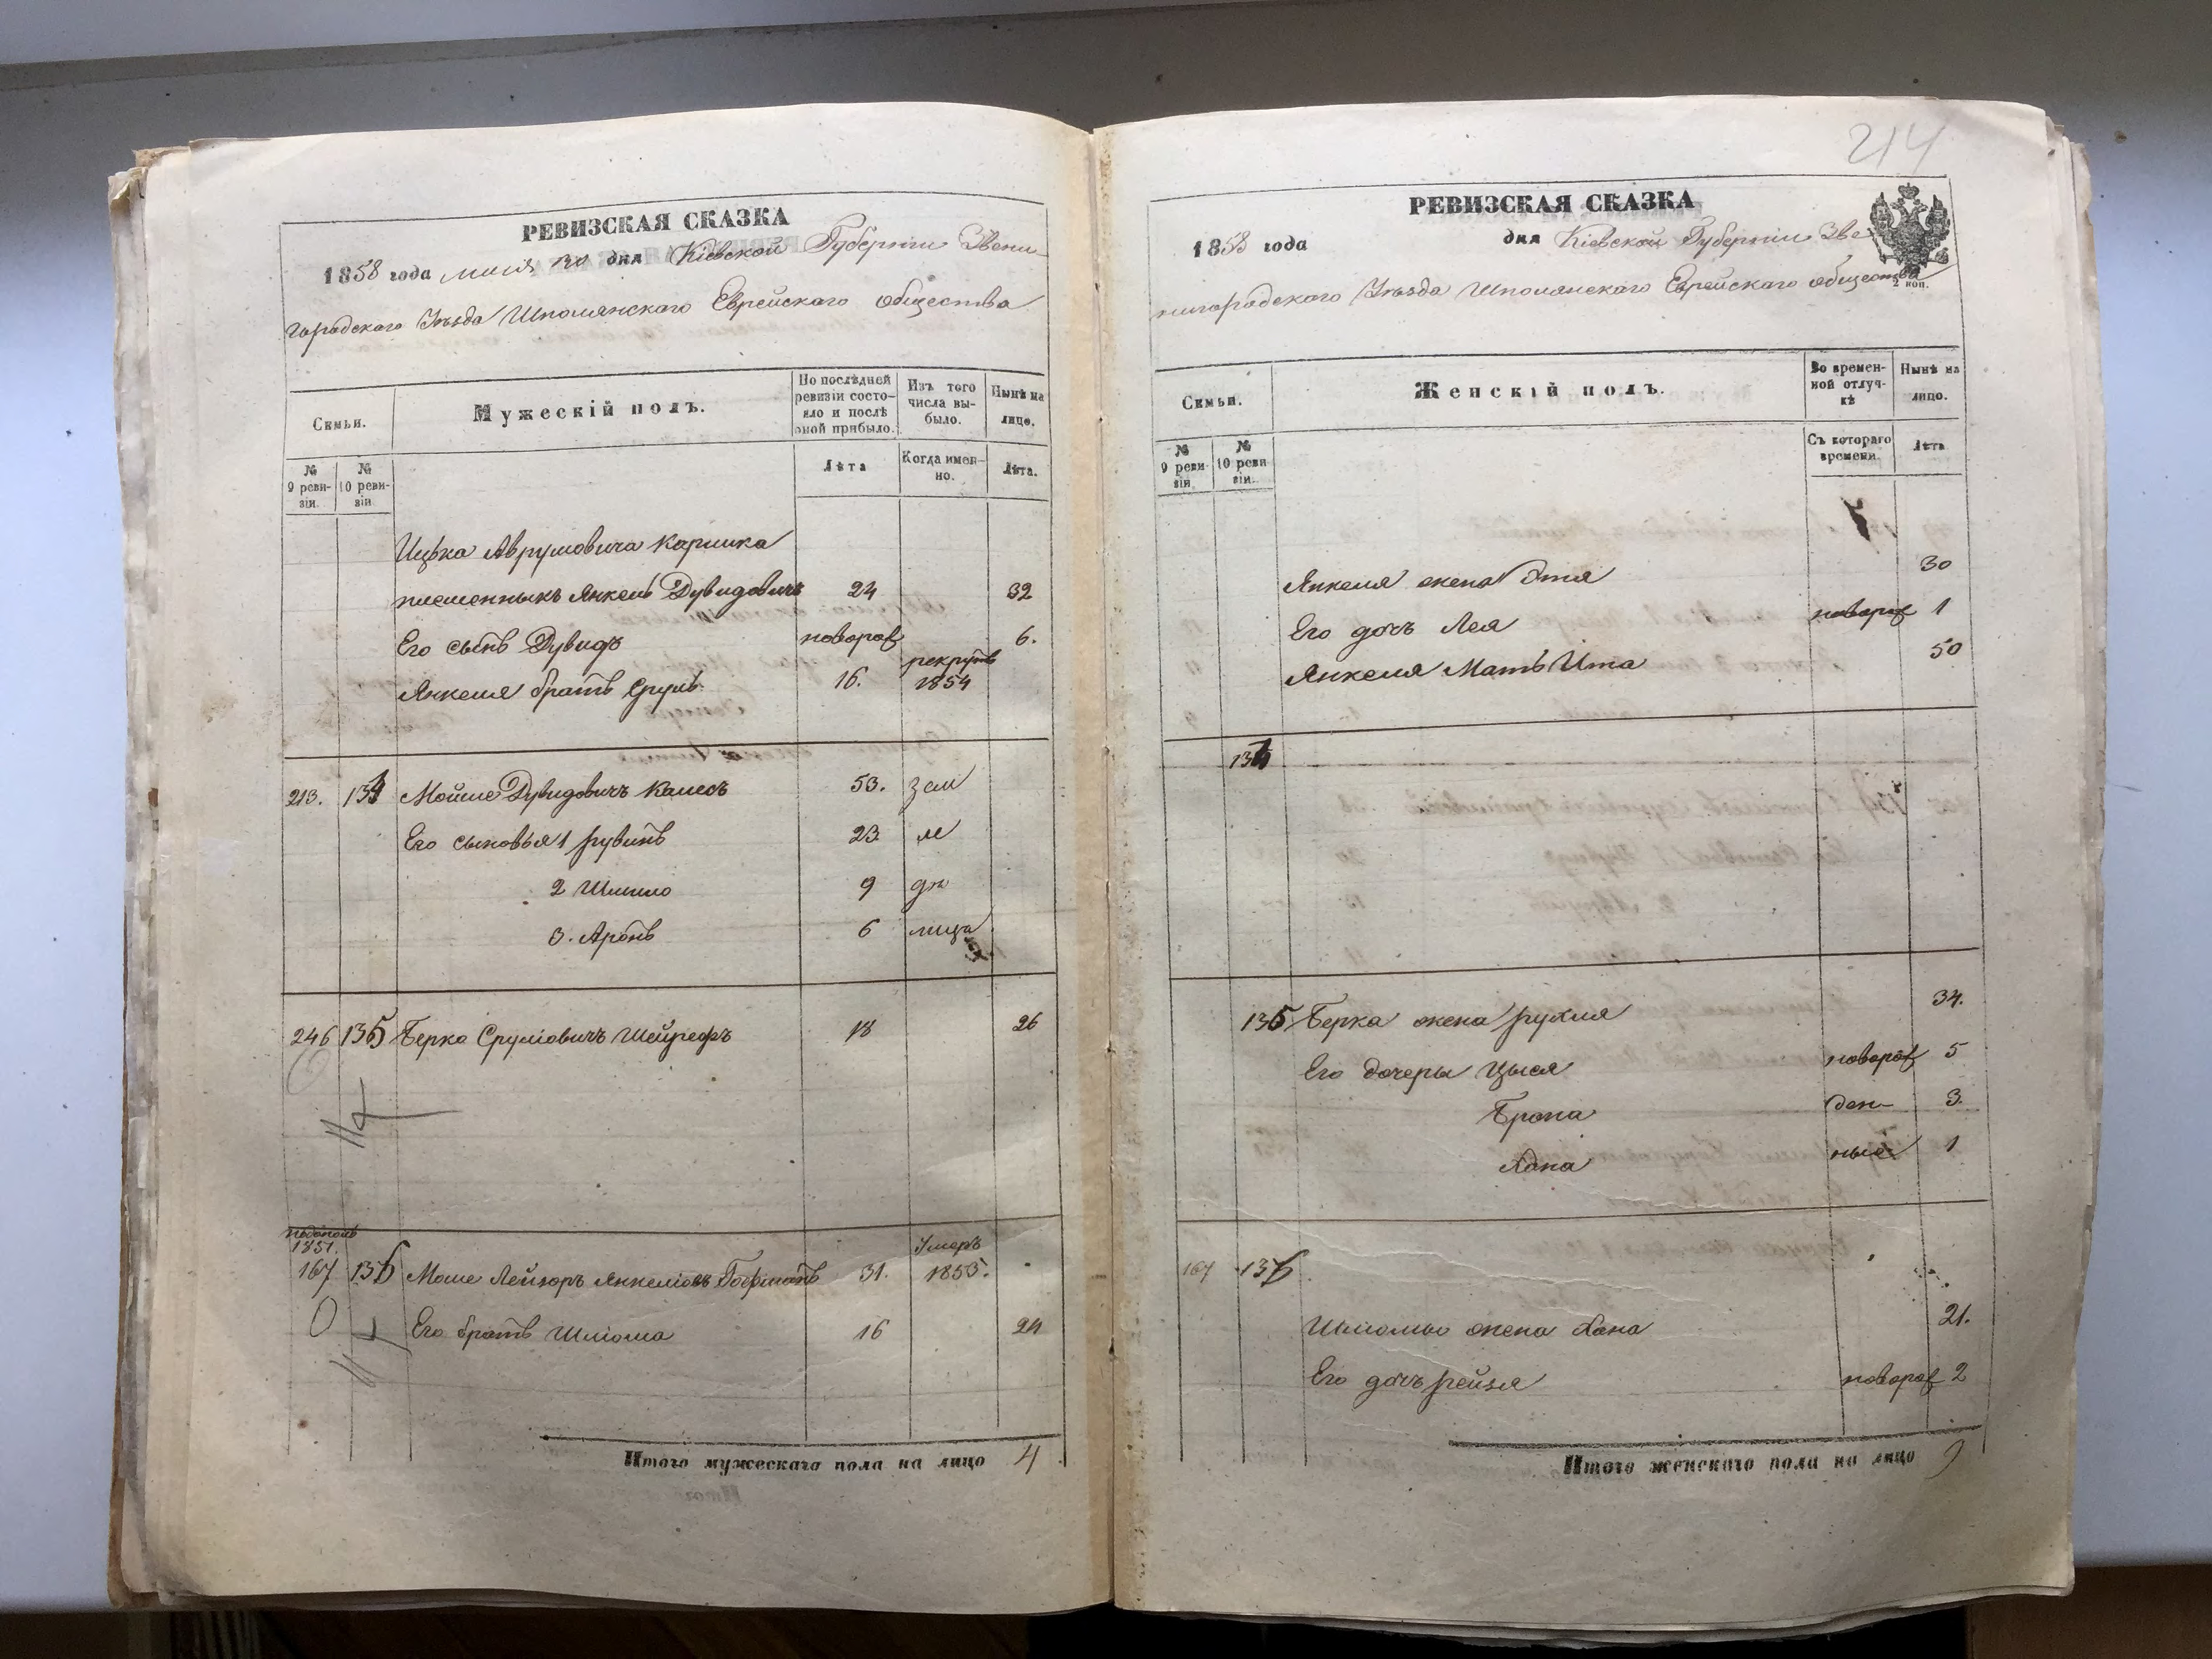 РЕВИЗСКАЯ СКАЗКА
1858 года дня Кіевской Губерніи Звени-
городского Уѣзда Шполянскаго Еврейскаго общества
Семьи.
Мужескій полъ.
По послѣдней ревизіи состояло и послѣ оной прибыло.
Изъ того числа выбыло.
Нынѣ на лицо.
№ 9 ревизіи.
№ 10 ревизіи
Лѣта
Когда именно.
Лѣта.
Ицька Аврумовича
племенныкъ Янкель Дувидовичъ 24 32
Его сынъ Дувидъ новорож 6.
Янкеля братъ Сруль 16. рекрутъ 1854
213. 134 Мойше Дувидовичъ 53. зам
Его сыновья 1 рувинъ 23 м
2 Шмило 9
3. Аронъ 6 лица
246 135 Берко Сруліовичъ 18 26
1851.
167 136 Моше Лейзоръ Янкеліовъ Гофманъ 31. Умеръ 1853.
Его братъ Шліома 16 24
Итого мужескаго пола на лицо 4
214
РЕВИЗСКАЯ СКАЗКА
1858 года дня Кіевской Губерніи Зве
нигородского Уѣзда Шполянскаго Еврейскаго общества
2 коп.
Семьи.
Женскій полъ.
Во временной отлучкѣ
Нынѣ на лицо.
№ 9 ревизіи
№ 10 ревизіи.
Съ котораго времени.
Лѣта
Янкеля жена Этя 30
Его дочъ Лея новорож 1
Янкеля Мать Ита 50
134
135 Берка жена рухля 34.
Его дочеры Цыся новорож 5
Брона ден- 3.
Хана ные 1
167 136
Шліомы жена Хана 21.
Его дочъ рейзя новорож 2
Итого женскаго пола на лицо 9